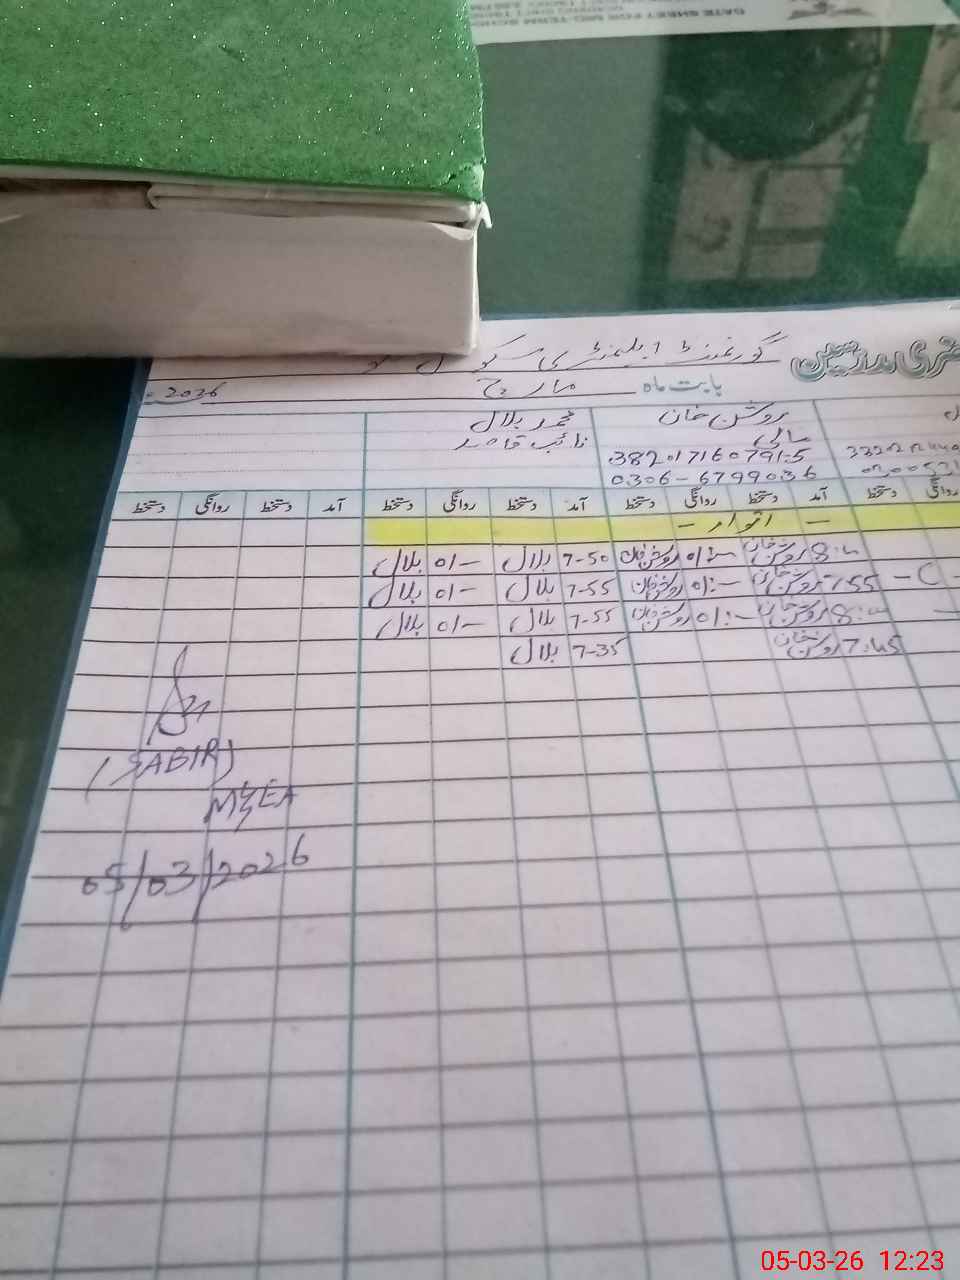 گورنمنٹ ایلیمنٹری سکول
حاضری مدرسین
بابت ماہ مارچ 2036
روشن خان
مالی
382017160791-5
0306-6799036
محمد بلال
نائب قاصد
روانگی دستخط آمد دستخط روانگی دستخط آمد دستخط روانگی دستخط آمد دستخط روانگی دستخط
— اتوار —
روشن خان روشن خان 7-50 بلال 01- بلال
- C - 7:55 روشن خان 01:- روشن خان 7-55 بلال 01- بلال
روشن خان 01:- روشن خان 7-55 بلال 01- بلال
7:45 روشن خان 7-35 بلال
(SABIR)
MEA
05/03/2026
05-03-26 12:23